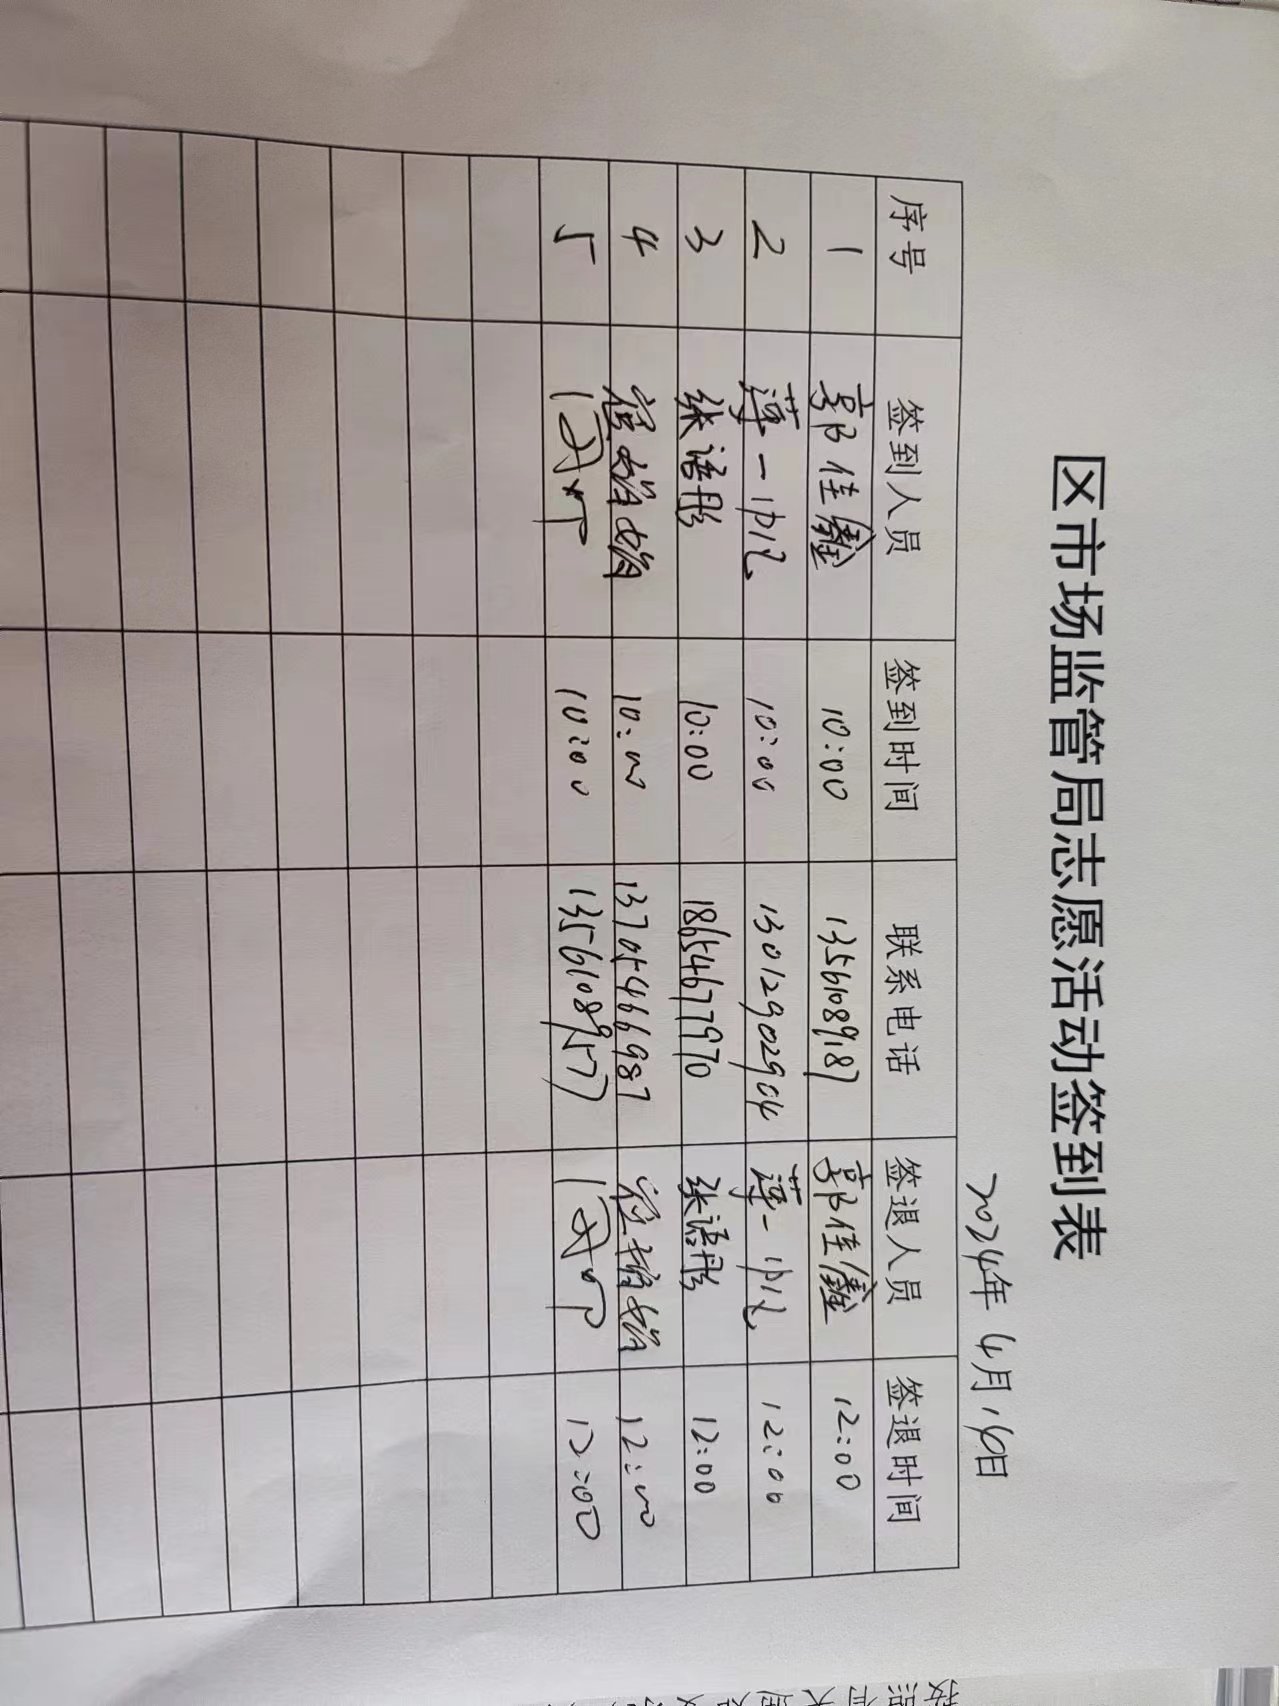 区市场监管局志愿活动签到表
2024年4月16日
序号 签到人员 签到时间 联系电话 签退人员 签退时间
1 郭佳鑫 10:00 13561089187 郭佳鑫 12:00
2 薄一帆 10:00 13012902904 薄一帆 12:00
3 张语彤 10:00 18654677970 张语彤 12:00
4 10:00 13705466987 12:00
5 10:00 13561089577 12:00